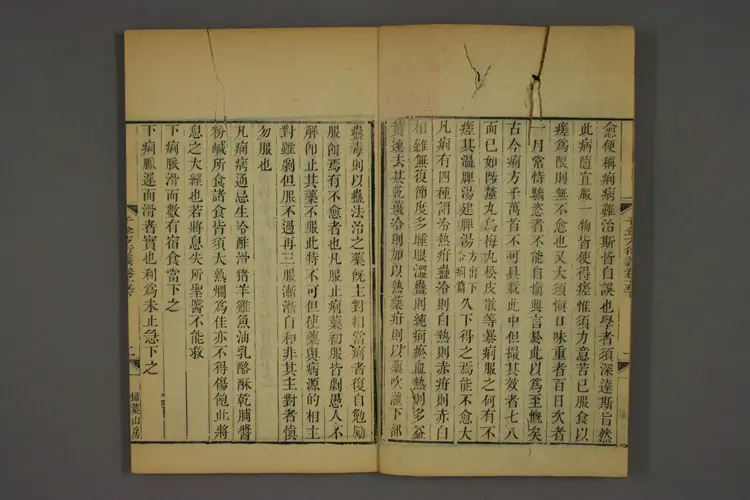 愈便稱痢病難治斯皆自誤也學者須深達斯旨然
此病隨宜服一物皆使得瘥惟須力意苦已服食以
瘥爲限則無不愈也又大須愼口味重者百日次者
一月常恃驕恣者不能自愼與言於此以爲至慨矣
古今痢方千萬首不可具載此中但撮其效者七八
而已如陟釐丸烏梅丸松皮散等暴痢服之何有不
瘥其溫脾湯建脾湯方出下冷痢篇久下得之焉能不愈大
凡痢有四種謂冷熱疳蠱冷則白熱則赤疳則赤白
相雜無復節度多睡眼澀蠱則純痢瘀血熱則多益
黃連去其乾薑冷則加以熱藥疳則以藥吹灌下部
蠱毒則以蠱法治之藥旣主對相當痢者復自勉勵
服餌焉有不愈者也凡服止痢藥初服皆劇愚人不
解卽止其藥不服此特不可但使藥與病源的相主
對雖劇但服不過再三服漸漸自和非其主對者愼
勿服也
凡痢病通忌生冷酢滑猪羊雞魚油乳酪酥乾脯醬
粉鹹所食諸食皆須大熟爛爲佳亦不得傷飽此將
息之大經也若將息失所聖醫不能救
下痢脈滑而數有宿食當下之
下痢脈遲而滑者實也利爲未止急下之
千金方衍義卷
二
掃葉山房